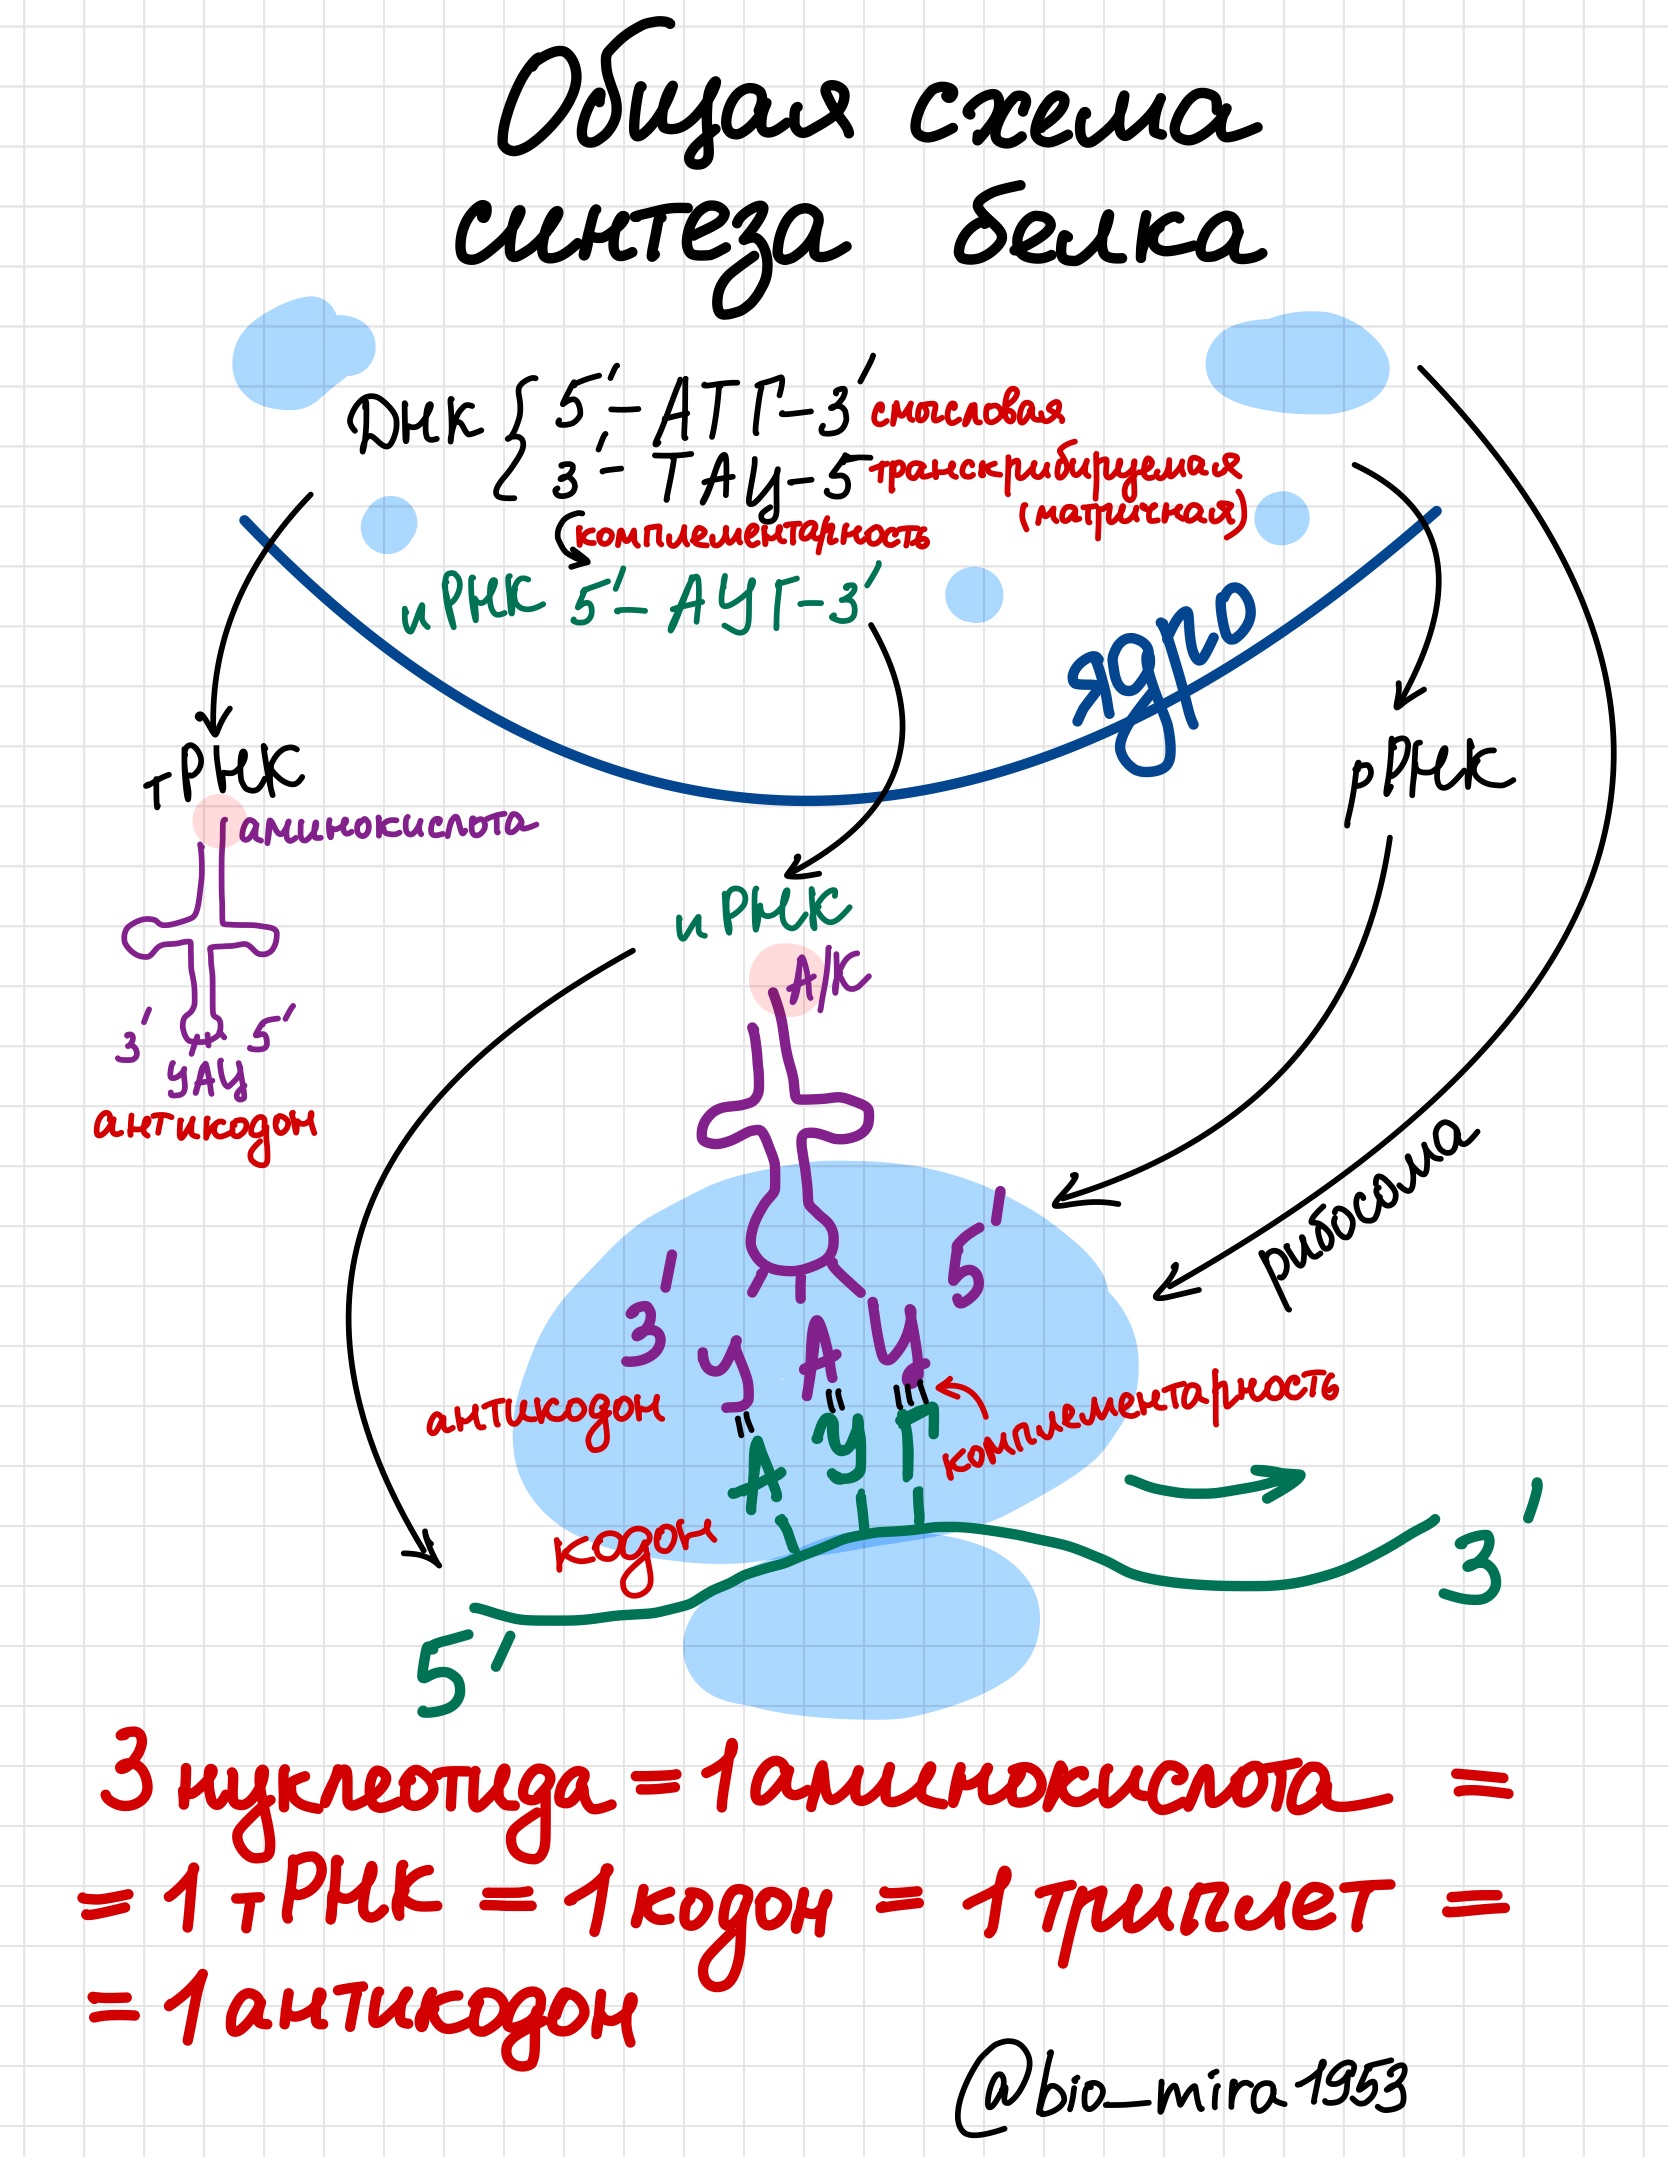 Общая схема
синтеза белка
ДНК { 5'-АТГ-3' смысловая
3'-ТАЦ-5 транскрибируемая
(матричная)
комплементарность
иРНК 5'-АУГ-3'
ядро
тРНК
рРНК
аминокислота
иРНК
А/К
3' 5'
УАЦ
антикодон
рибосома
3' 5'
УАЦ
антикодон
комплементарность
АУГ
кодон
3'
5'
3 нуклеотида = 1 аминокислота =
= 1 тРНК = 1 кодон = 1 триплет =
= 1 антикодон
@bio_mira1953